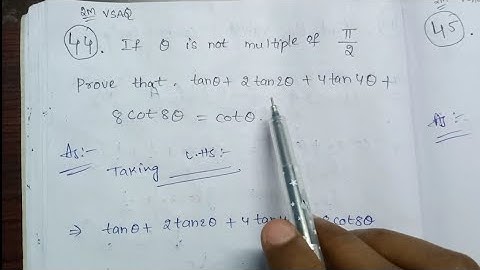 2M VSAQ
44. If θ is not multiple of π/2
Prove that. tanθ + 2tan2θ + 4tan4θ +
8cot8θ = cotθ.
As:-
Taking L.H.S:-
⇒ tanθ + 2tan2θ + 4tan cot8θ
45.
As:-